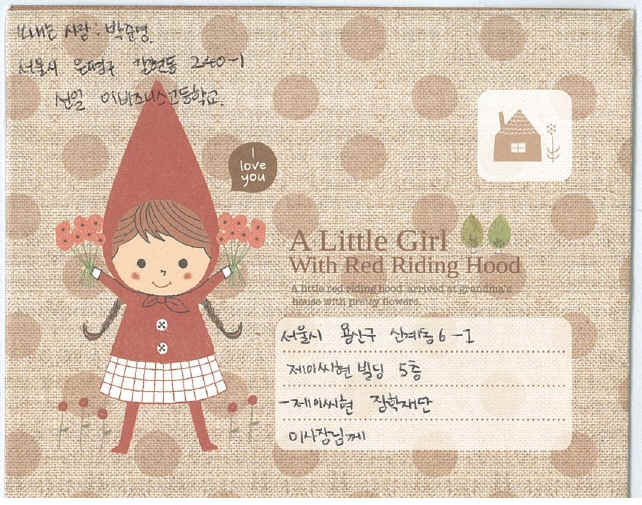 보내는 사람 : 박준영.
서울시 은평구 갈현동 240-1
선일 이비즈니스고등학교.
I
love
you
A Little Girl
With Red Riding Hood
A little red riding hood arrived at grandma's
house with pretty flowers.
서울시 용산구 신계동 6-1
제이씨현빌딩 5층
-제이씨현 장학재단
이사장님께